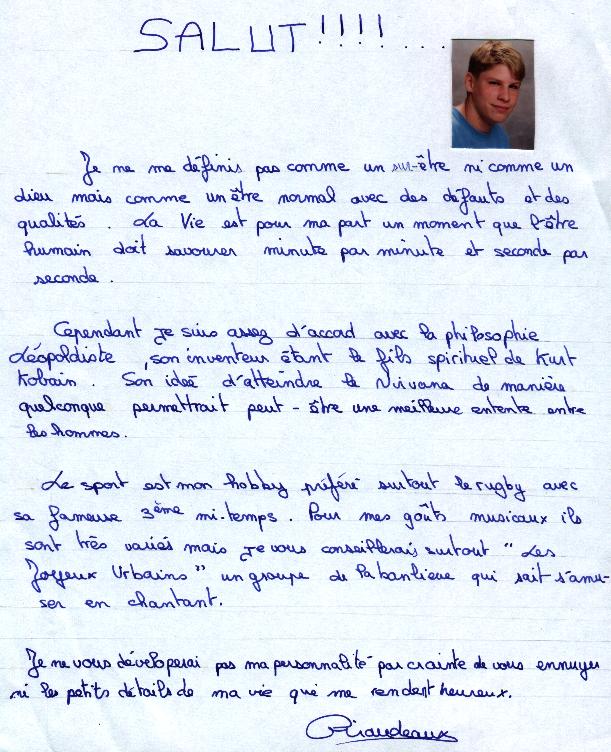 SALUT !!!!...
Je ne me définis pas comme un sur-être ni comme un
dieu mais comme un être normal avec des défauts et des
qualités. La Vie est pour ma part un moment que l'être
humain doit savourer minute par minute et seconde par
seconde.
Cependant je suis assez d'accord avec la philosophie
Léopoldiste, son inventeur étant le fils spirituel de Kurt
Kobain. Son idée d'atteindre le Nirvana de manière
quelconque permettrait peut-être une meilleure entente entre
les hommes.
Le sport est mon hobby préféré surtout le rugby avec
sa fameuse 3ème mi-temps. Pour mes goûts musicaux ils
sont très variés mais je vous conseillerais surtout "Les
Joyeux Urbains" un groupe de la banlieue qui sait s'amu-
ser en chantant.
Je ne vous développerai pas ma personnalité par crainte de vous ennuyer
ni les petits détails de ma vie qui me rendent heureux.
Giraudeaux